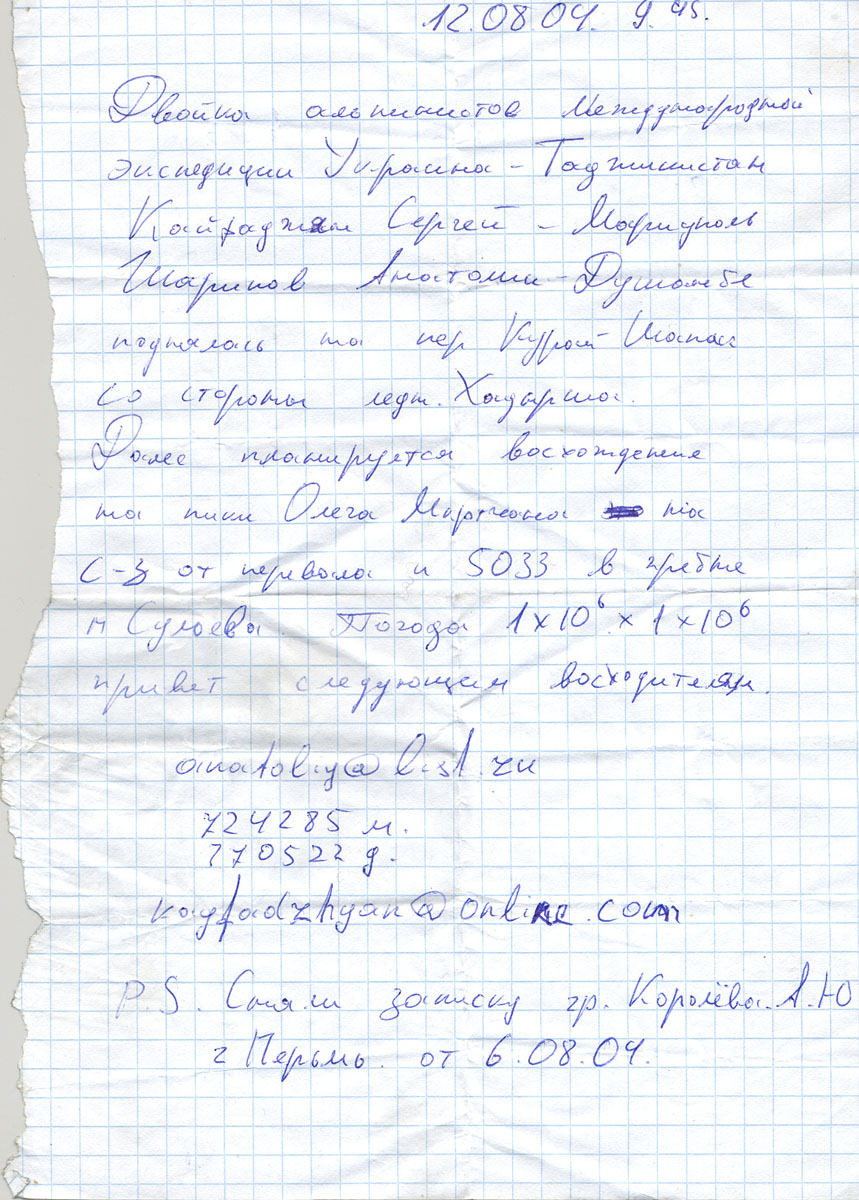 12.08.04. 9.45.
Двойка альпинистов Международной
экспедиции Украина - Таджикистан
Кайфаджян Сергей - Мариуполь
Шарипов Анатолий - Душанбе
поднялась на пер Курай-Шапак
со стороны ледн. Хадырша.
Далее планируется восхождение
на пики Олега Миртчана на
С-З от перевала и 5033 в гребне
п Сулоева. Погода 1x10⁶ x 1x10⁶
привет следующим восходителям.
anatoliy@list.ru
724285 м.
370522 д.
kayfadzhyan@online.com
P.S. Сняли записку гр. Королёва А.Ю
г Пермь от 6.08.04.